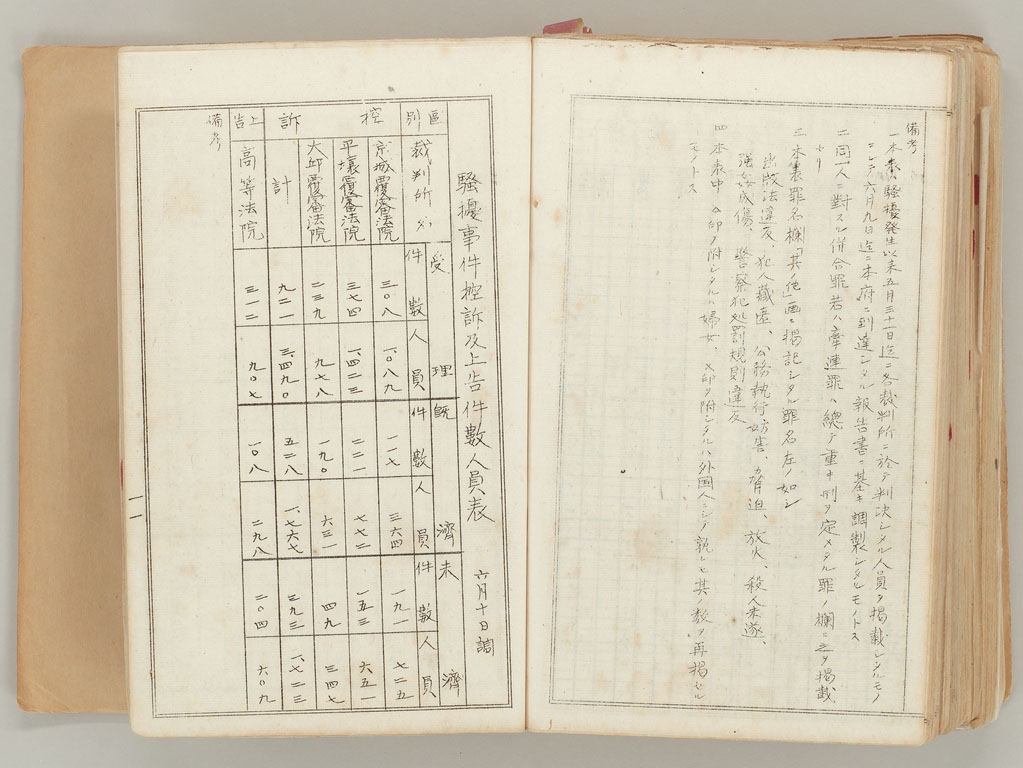 備考
一本表ハ騷擾發生以来五月三十一日迄ニ各裁判所ニ於テ判決シタル人員ヲ掲載シタルモノ
ニシテ六月九日迄ニ本府ニ到達シタル報告書ニ基キ調製シタルモノトス
二同一人ニ對スル併合罪若ハ牽連罪ハ總テ重キ刑ヲ定メタル罪ノ欄ニ之ヲ掲載
セリ
三本表罪名欄「其ノ他」画ニ掲記シタル罪名左ノ如シ
出版法違反、犯人藏匿、公務執行妨害、脅迫、放火、殺人未遂、
強姦致傷、警察犯処罰規則違反
四本表中 印ヲ附シタルハ婦女 ×印ヲ附シタルハ外国人ニシテ孰レモ其ノ数ヲ再掲セル
モノトス
騷擾事件控訴及上告件數人員表 六月十日調
區別 裁判所 受理 件數 人員 既濟 件數 人員 未濟 件數 人員
控訴 京城覆審法院 三〇八 一、〇八九 一一七 三六四 一九一 七二五
平壤覆審法院 三七四 一、四二三 二二一 七七二 一五三 六五一
大邱覆審法院 二三九 九七八 一九〇 六三一 四九 三四七
計 九二一 三、四九〇 五二八 一、七六七 三九三 一、七二三
上告 高等法院 三一二 九〇七 一〇八 二九八 二〇四 六〇九
備考
一一